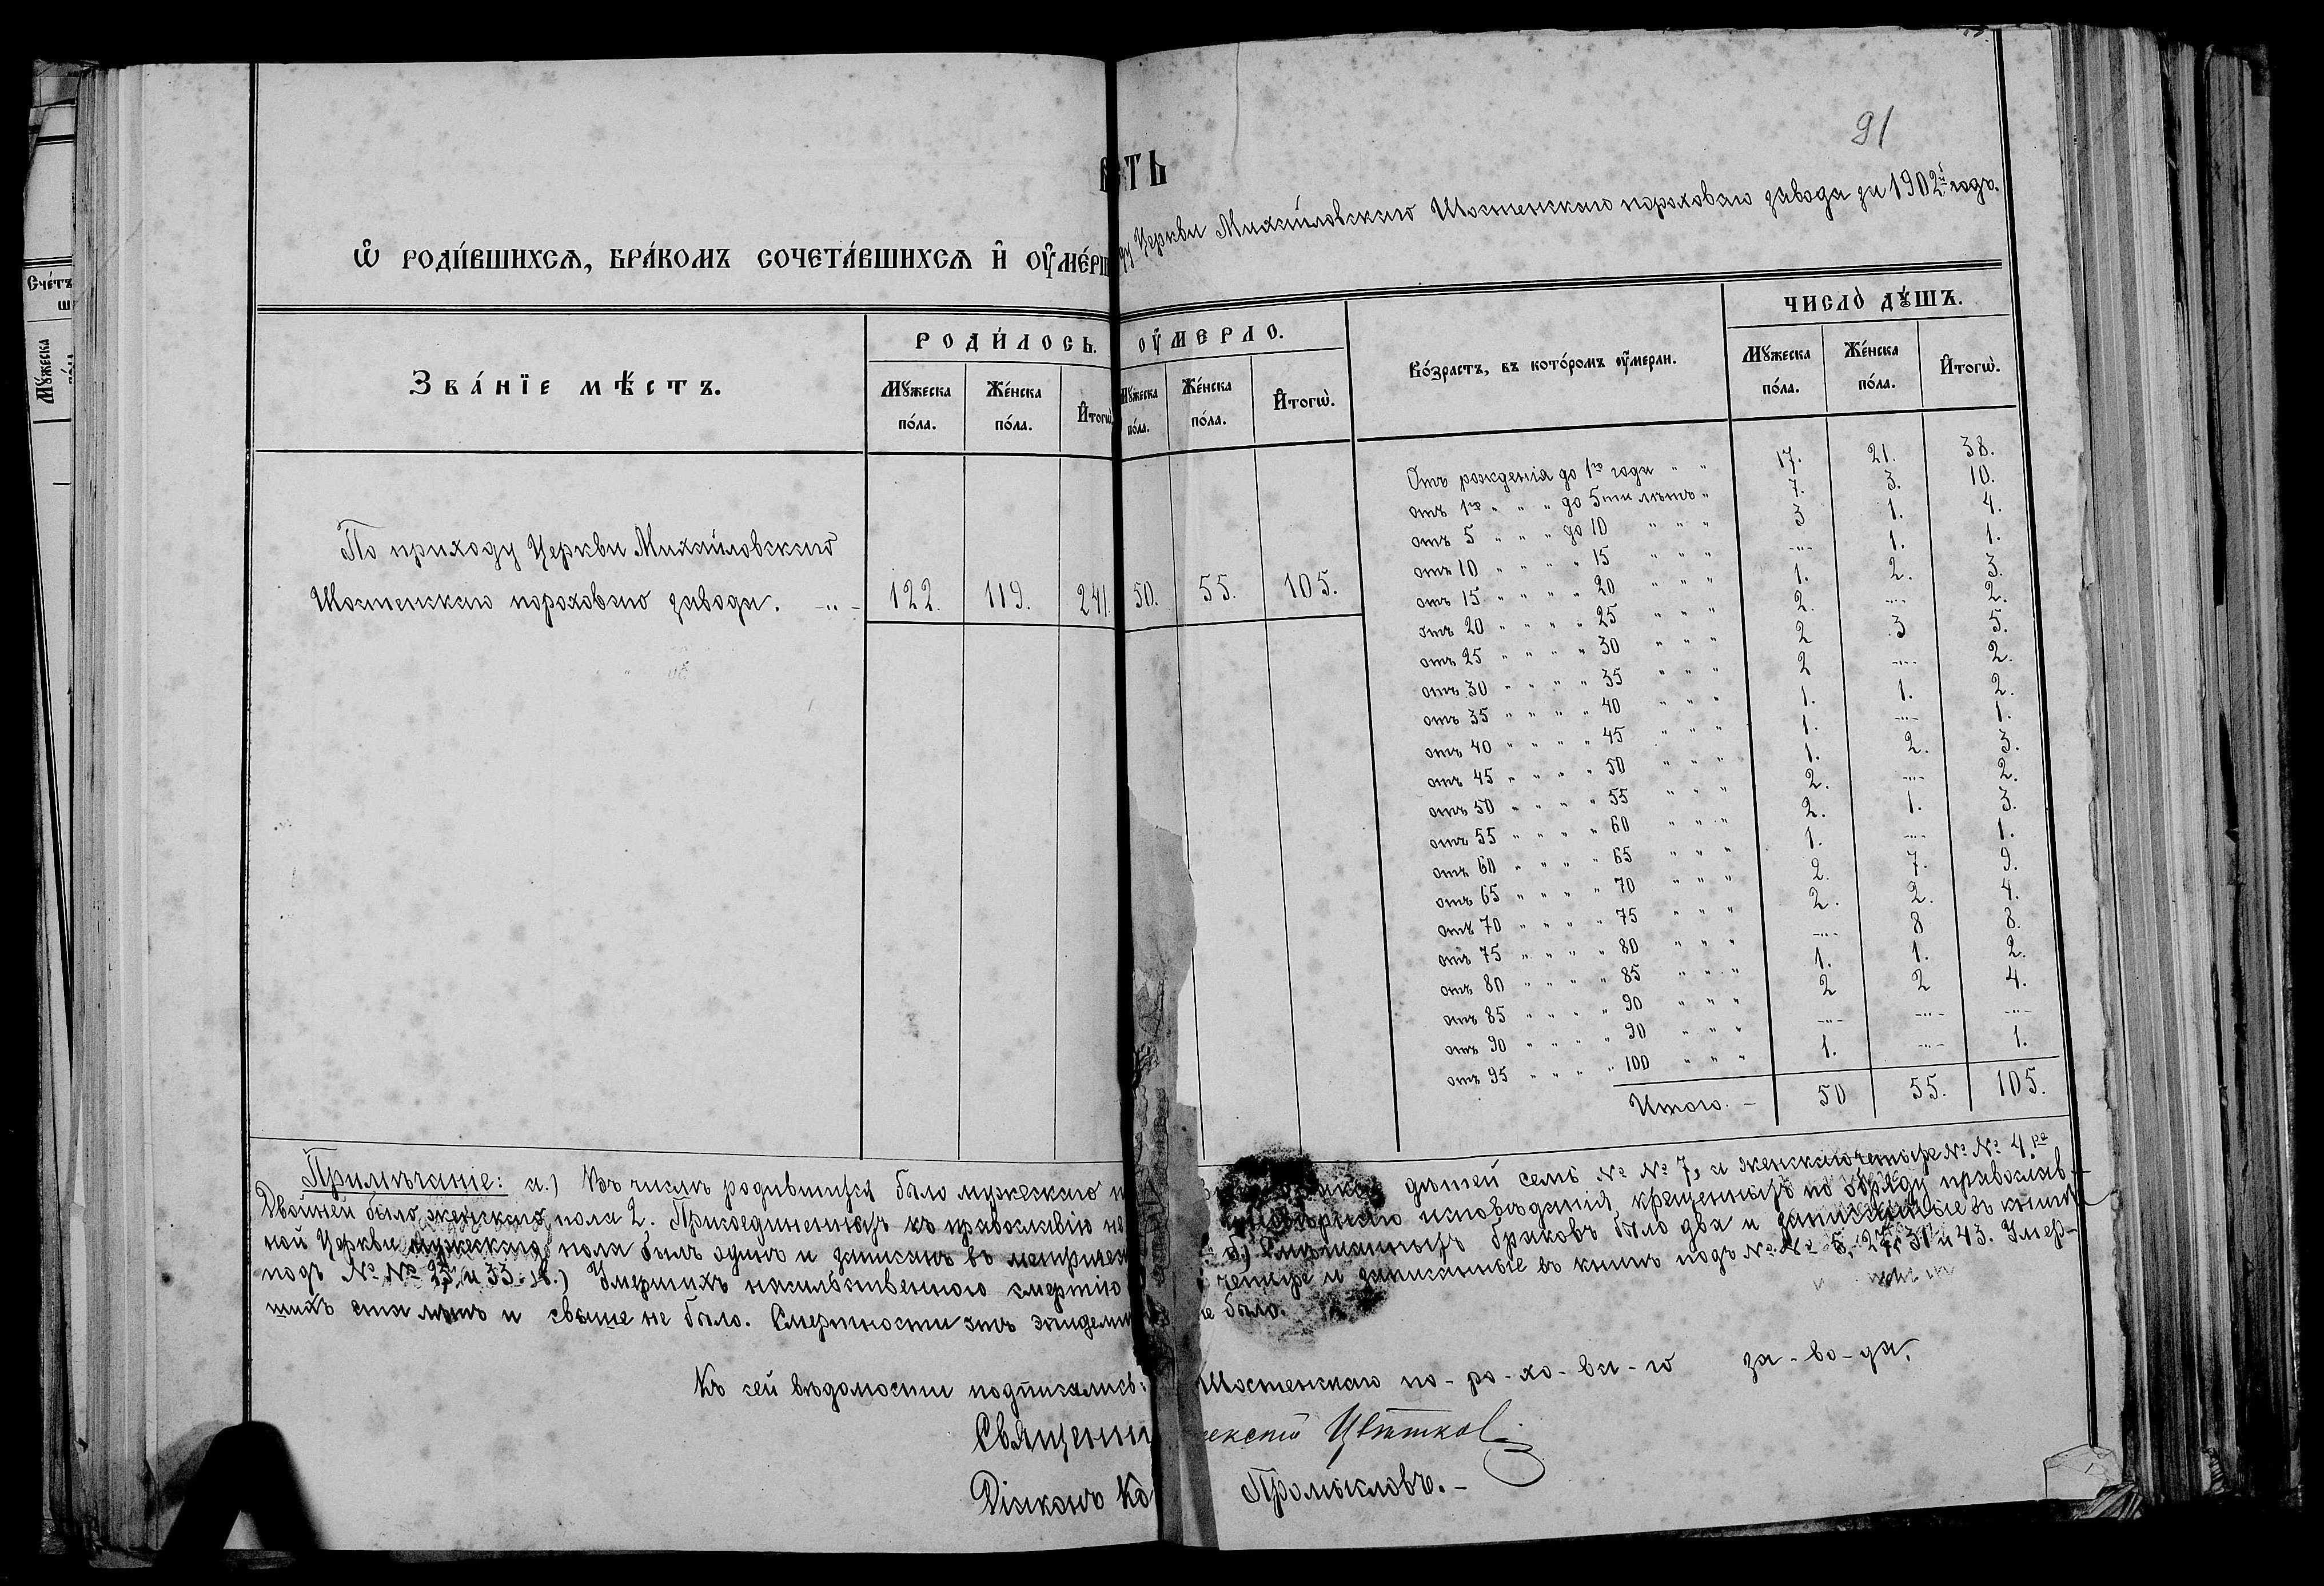 91
сть
Ѡ҆ РОДИ́ВШИХСѦ, БРА́КОМЪ СОЧЕТА́ВШИХСѦ И҆ ОУ҆МЕ́РШ
Церкви Михайловскаго Шостенскаго пороховаго завода за 1902й годъ.
Счетъ
Мꙋжеска
Зва́нїе мѣ́стъ.
РОДИ́ЛОСЬ.
Мꙋ́жеска по́ла.
Же́нска по́ла.
И҆тогѡ̀.
ОУ҆́МЕРЛО.
Мꙋ́жеска по́ла.
Же́нска по́ла.
И҆тогѡ̀.
Во́зрастъ, въ кото́ромъ оу҆́мерли.
ЧИСЛО̀ ДꙊ́ШЪ.
Мꙋ́жеска по́ла.
Же́нска по́ла.
И҆тогѡ̀.
По приходу Церкви Михайловскаго
Шостенскаго пороховаго завода. -„- 122. 119. 241. 50. 55. 105.
Отъ рожденія до 1го года " " 17. 21. 38.
отъ 1го " " " до 5ти лѣтъ " 7. 3. 10.
отъ 5 " " " до 10 " " " 3 1. 4.
отъ 10 " " " " 15 " " " -„- 1. 1.
отъ 15 " " " " 20 " " " 1. 2. 3.
отъ 20 " " " " 25 " " " 2. -„- 2.
отъ 25 " " " " 30 " " " 2 3 5.
отъ 30 " " " " 35 " " " 2 -„- 2.
отъ 35 " " " " 40 " " " 1. 1. 2.
отъ 40 " " " " 45 " " " 1. -„- 1.
отъ 45 " " " " 50 " " " 1. 2. 3.
отъ 50 " " " " 55 " " " 2. -„- 2.
отъ 55 " " " " 60 " " " 2. 1. 3.
отъ 60 " " " " 65 " " " 1. -„- 1.
отъ 65 " " " " 70 " " " 2. 7. 9.
отъ 70 " " " " 75 " " " 2. 2. 4.
отъ 75 " " " " 80 " " " -„- 8 8.
отъ 80 " " " " 85 " " " 1. 1. 2.
отъ 85 " " " " 90 " " " 2 2 4.
отъ 90 " " " " 90 " " " -„- -„- -„-
отъ 95 " " " " 100 " " " 1. -„- 1.
Итого. - 50 55. 105.
Примѣчаніе: а.) Въ числѣ родившихся было мужескаго дѣтей семь № № 7, и женскаго четыре № № 4.
Двойней было женскаго пола 2. Присоединенныхъ къ православію исповѣданія, крещенныхъ по обряду православ-
ной Церкви мужескаго пола былъ одинъ и записанъ въ метричес б.) Смѣшанныхъ браковъ было два и записанные въ книгѣ
подъ № № 25 и 33. в.) Умершихъ насильственною смертію четыре и записанные въ книгѣ подъ № № 5, 27, 31 и 43. Умер-
шихъ ста лѣтъ и свыше не было. Смертности отъ эпидеми не было.
Къ сей вѣдомости подписались: Шостенскаго по-ро-хо-ва-го за-во-да,
Священни Цвѣтков
Діаконъ Промысловъ. -